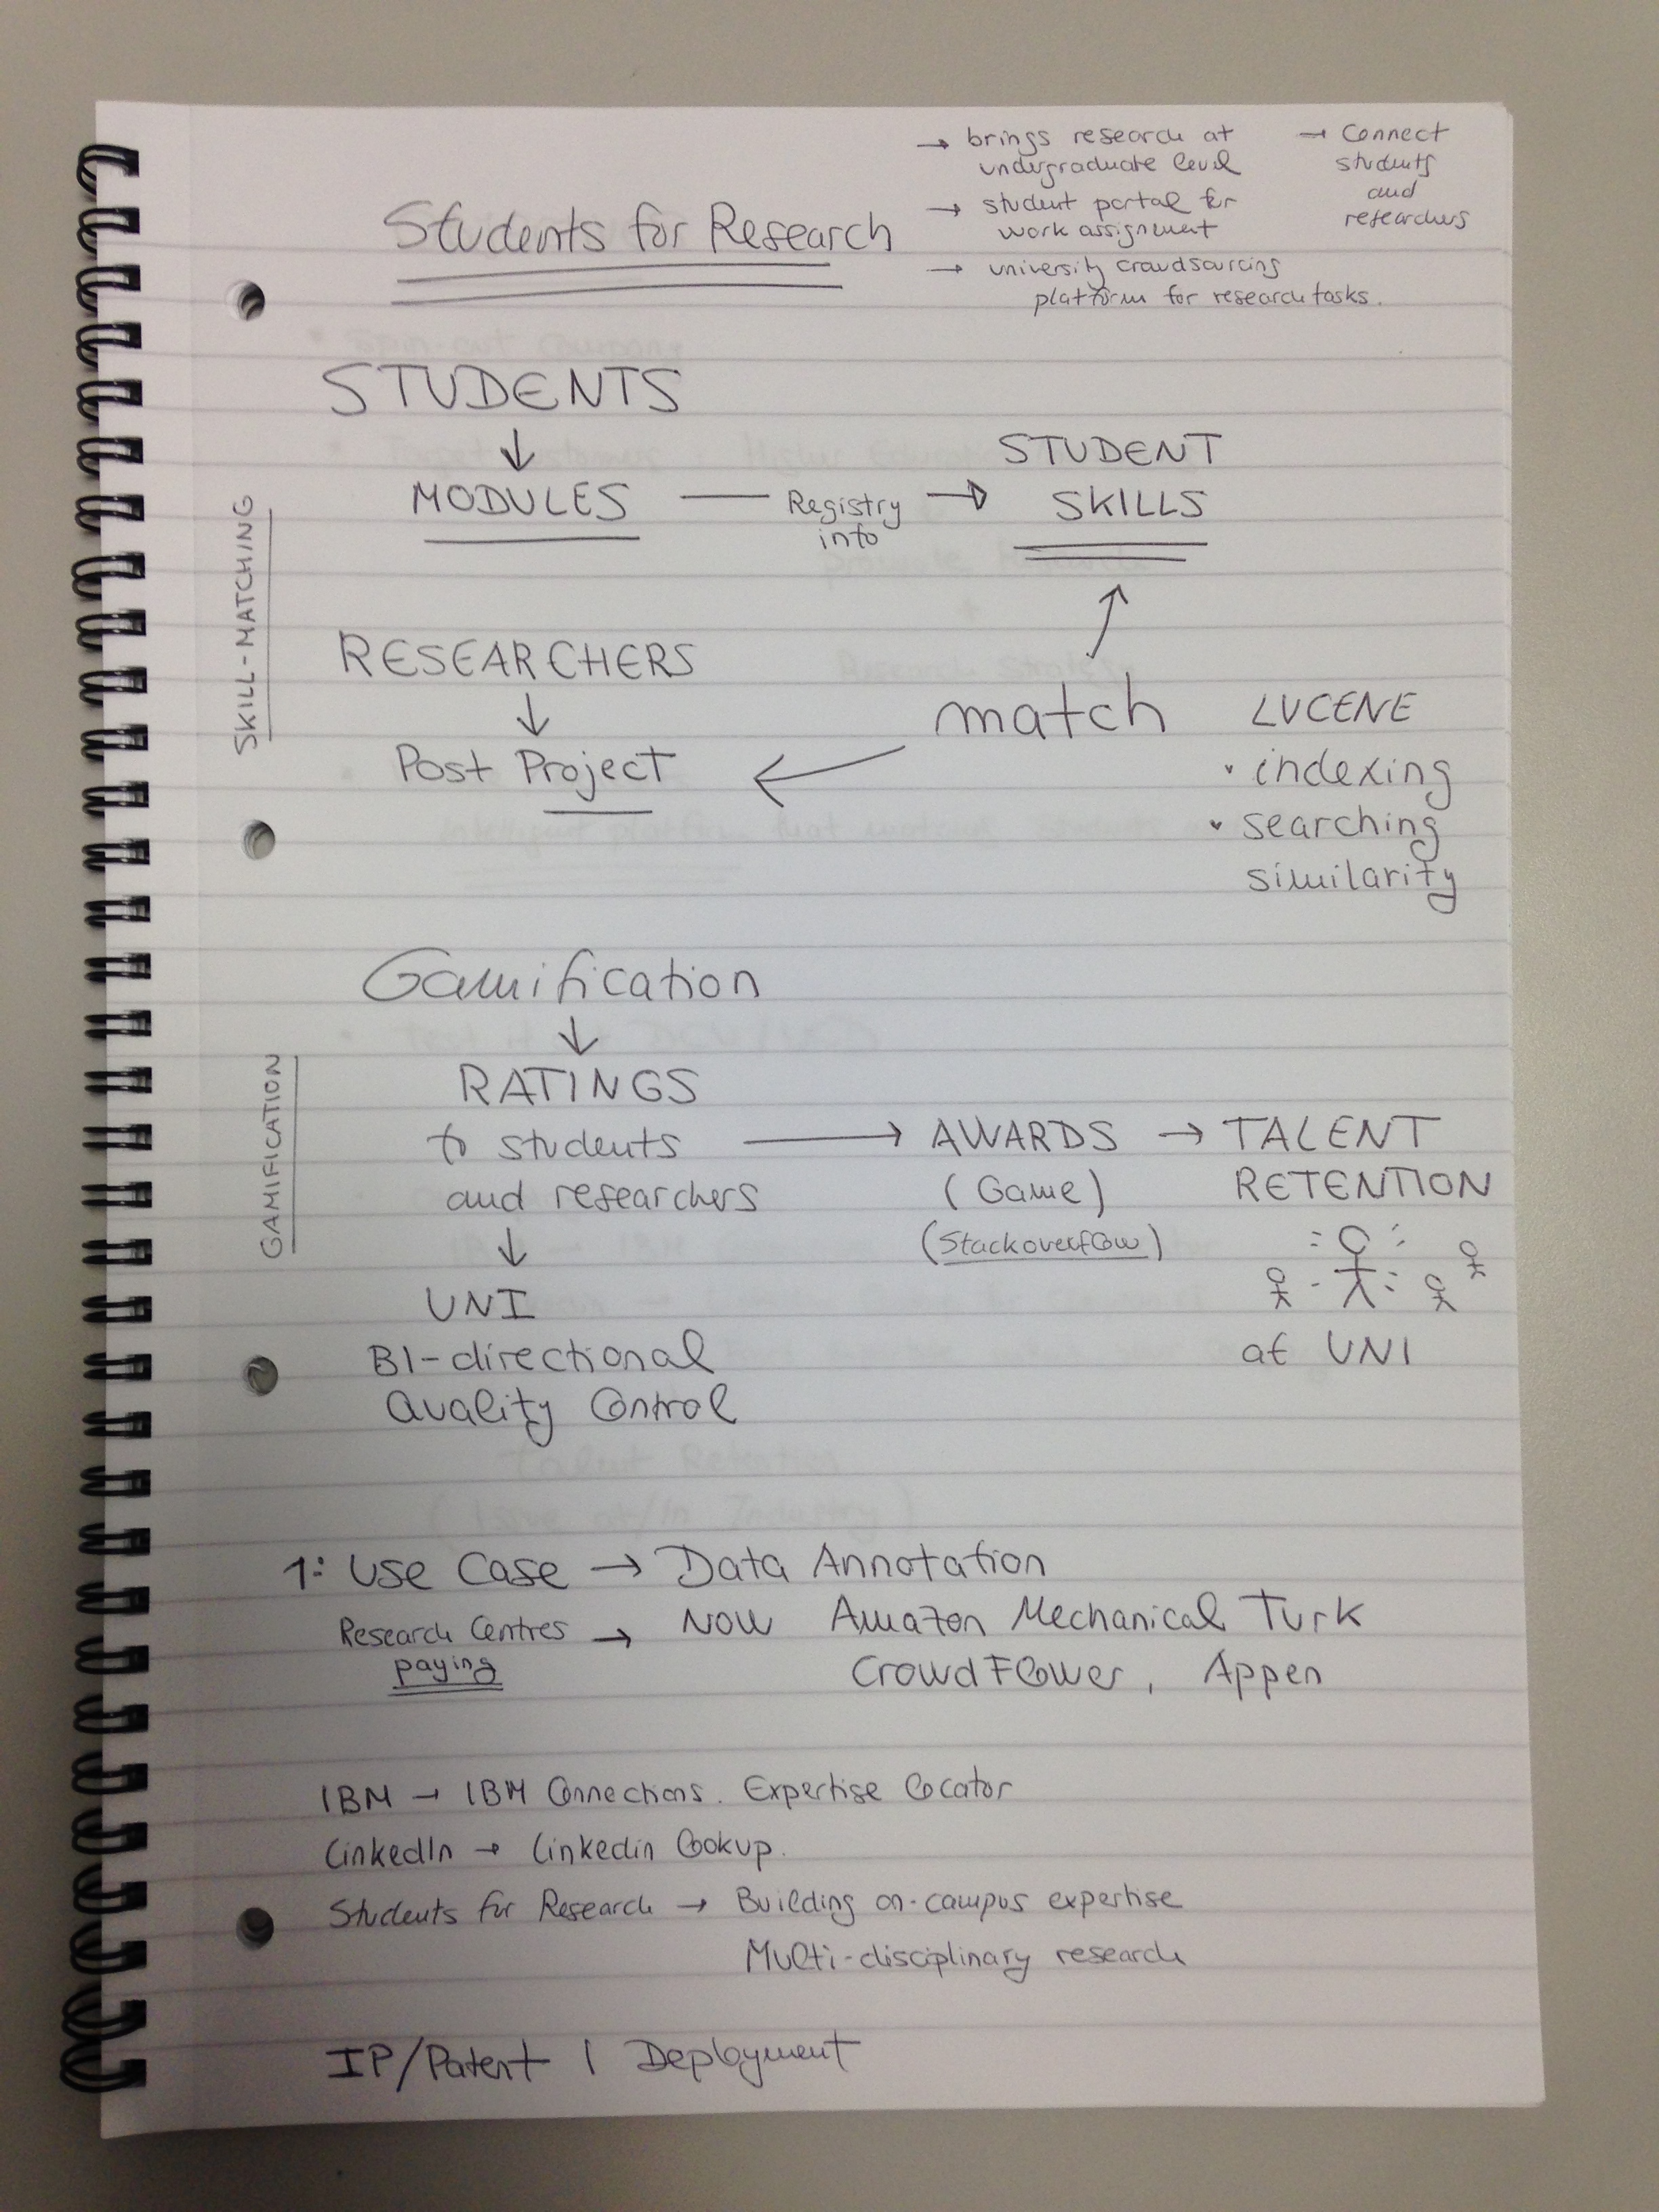 Students for Research
→ brings research at
undergraduate level
→ student portal for
work assignment
→ university crowdsourcing
platform for research tasks.
→ Connect
students
and
researchers
SKILL-MATCHING
STUDENTS
↓
MODULES — Registry into → STUDENT SKILLS
RESEARCHERS
↓
Post Project
match
LUCENE
• indexing
• searching
similarity
GAMIFICATION
Gamification
↓
RATINGS
to students → AWARDS → TALENT
and researchers (Game) RETENTION
(Stackoverflow)
↓
UNI
at UNI
BI-directional
Quality Control
1: Use Case → Data Annotation
Research Centres → NOW Amazon Mechanical Turk
paying CrowdFlower, Appen
IBM → IBM Connections. Expertise Locator
LinkedIn → Linkedin Lookup.
Students for Research → Building on-campus expertise
Multi-disciplinary research
IP/Patent | Deployment